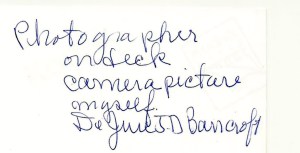 Photographer
on deck
camera picture
myself.
J.D Bancroft